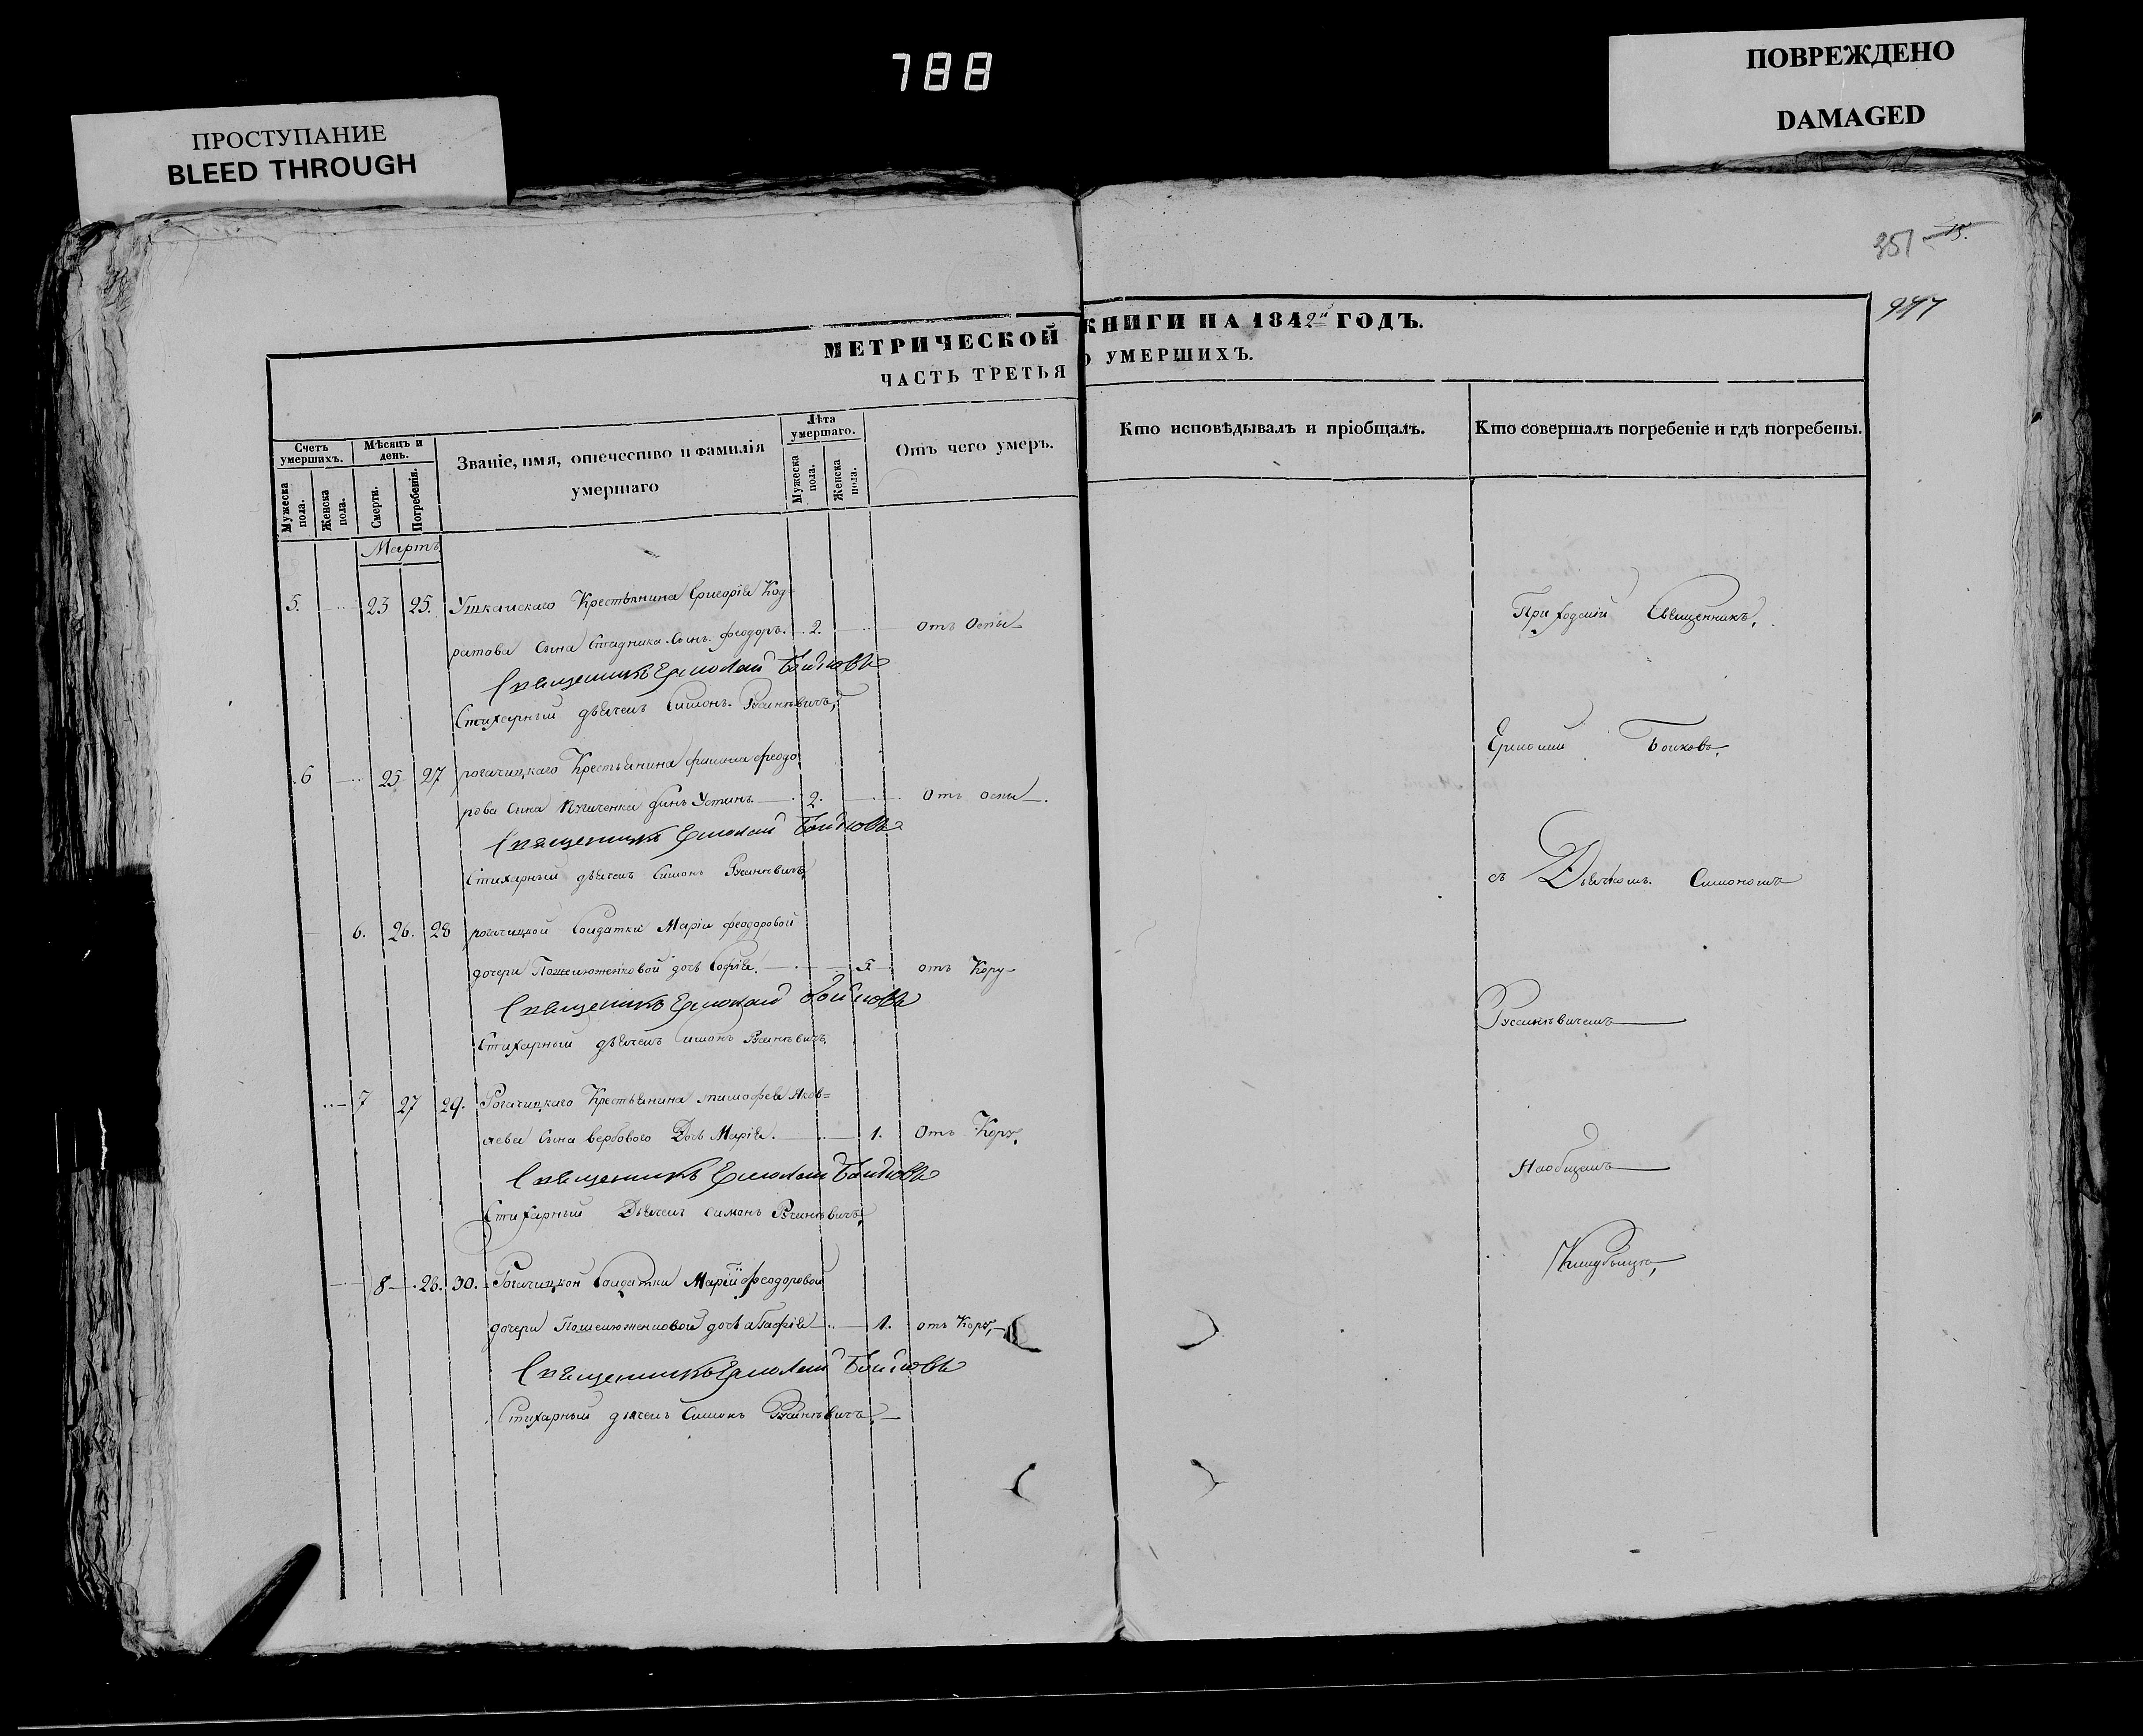 788
ПРОСТУПАНИЕ
BLEED THROUGH
ПОВРЕЖДЕНО
DAMAGED
351 15.
МЕТРИЧЕСКОЙ КНИГИ НА 1842й ГОДЪ.
ЧАСТЬ ТРЕТЬЯ О УМЕРШИХЪ.
Счетъ умершихъ.
Мужеска пола.
Женска пола.
Мѣсяцъ и день.
Смерти.
Погребенія.
Званіе, имя, отечество и фамилія умершаго
Лѣта умершаго.
Мужеска пола.
Женска пола.
Отъ чего умеръ.
Кто исповѣдывалъ и пріобщалъ.
Кто совершалъ погребеніе и гдѣ погребены.
Мартъ
5. 23 25. Крестьянина Григорія Код=
ратова Сына Стадника Сынъ Феодоръ. 2. Отъ Оспы
Священникъ Ермолай Бойковъ
Стихарный дьячекъ Симонъ Русинкѣвичъ,
6 25 27 рогачицкаго Крестьянина Феодо
рова Сына Сынъ Устинъ 2. Отъ оспы.
Священникъ Ермолай Бойковъ
Стихарный дьячекъ Симонъ Русинкѣвичъ,
6. 26. 28 рогачицкой Солдатки Маріи Феодоровой
дочери дочь Софія. 5. отъ Кору
Священникъ Ермолай Бойковъ
Стихарный дьячекъ Симонъ Русинкѣвичъ
7 27 29. Рогачицкаго Крестьянина тимофея Яков=
лева Сына вербового Дочь Марія. 1. Отъ Кору,
Священникъ Ермолай Бойковъ
Стихарный Дьячекъ Симонъ Русинкѣвичъ,
8 28. 30. Рогачицкой Солдатки Маріи Феодоровой
дочери дочь агафія 1. отъ Кору,
Священникъ Ермолай Бойковъ
Стихарный дьячекъ Симонъ Русинкѣвичъ,
Приходскій Священникъ,
Ермолай Бойковъ,
съ Дьячкомъ. Симономъ
Русинкѣвичемъ
На общемъ
Кладбищѣ,